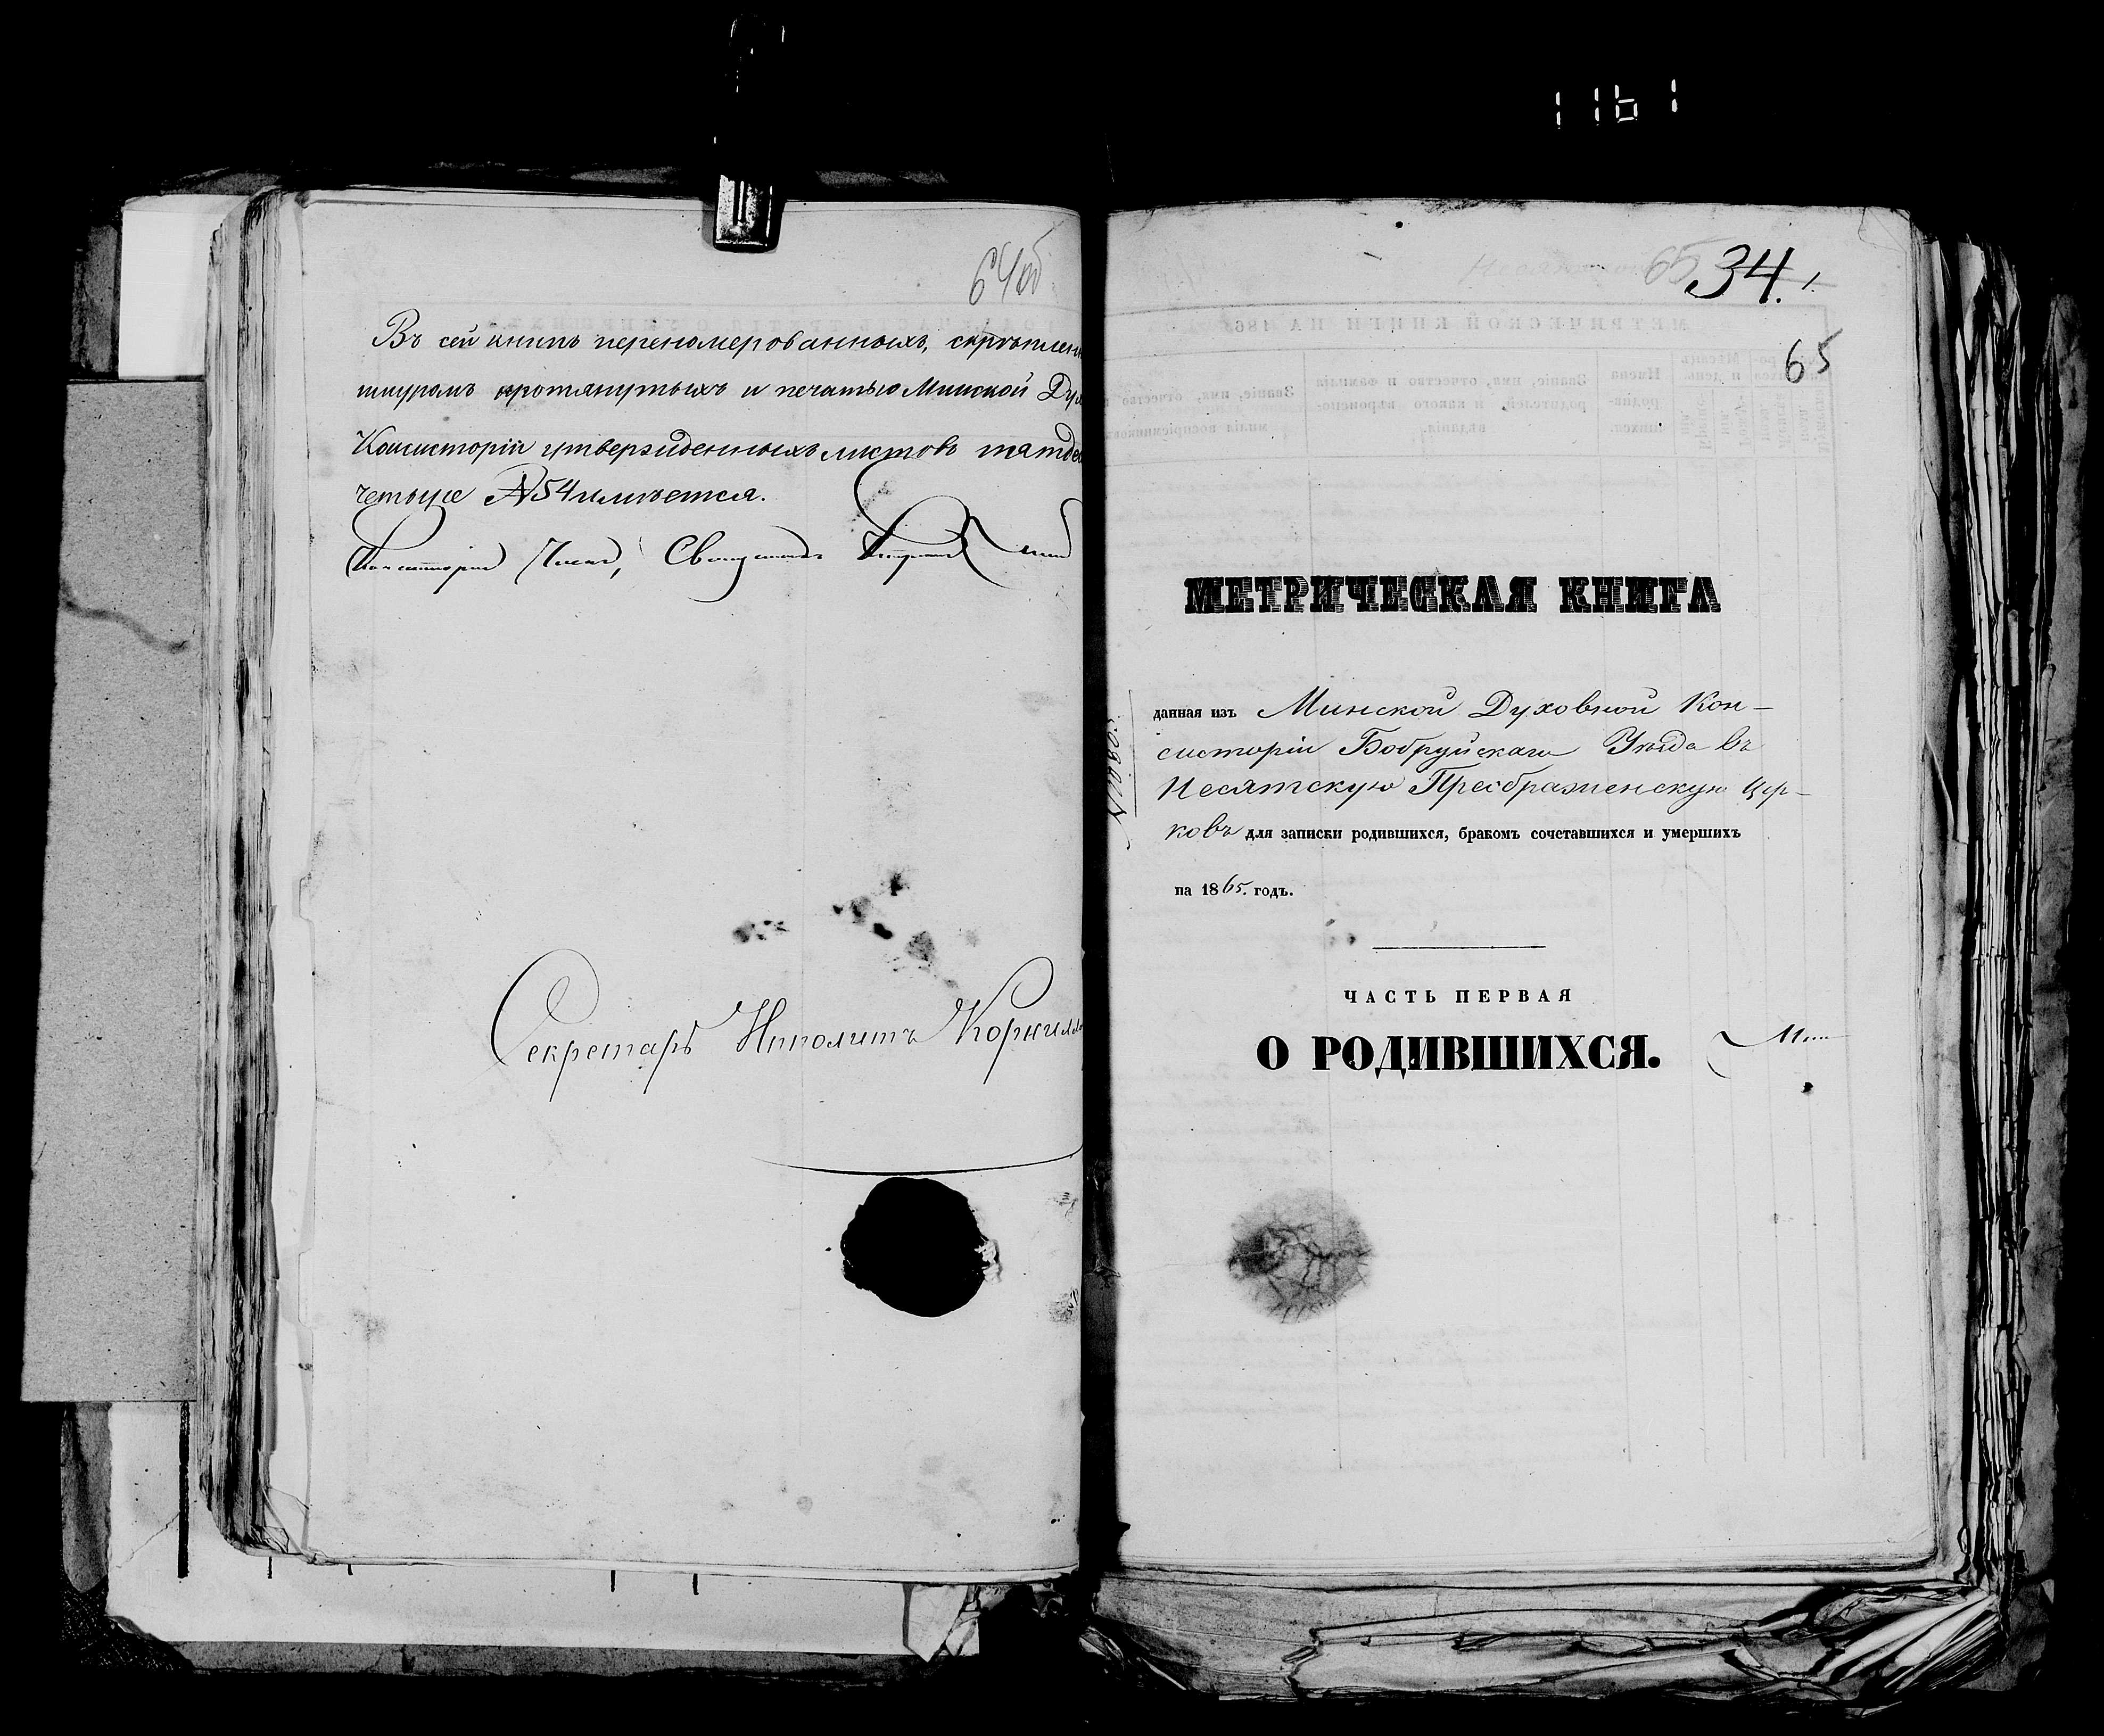 64об
Въ сей книгѣ перенумерованныхъ, скрѣплен
шнуромъ протянутыхъ и печатью Минской Ду
Консисторіи утвержденныхъ листовъ пятдес
четыре №54 имѣется.
Консисторіи Членъ, Священникъ
Секретарь Ипполитъ Корнил
1161
65 34. 1.
65
МЕТРИЧЕСКАЯ КНИГА
данная изъ Минской Духовной Кон-
систоріи Бобруйскаго Уѣзда въ
Несятскую Преображенскую Цер-
ковь для записки родившихся, бракомъ сочетавшихся и умершихъ
на 1865. годъ.
ЧАСТЬ ПЕРВАЯ
О РОДИВШИХСЯ.